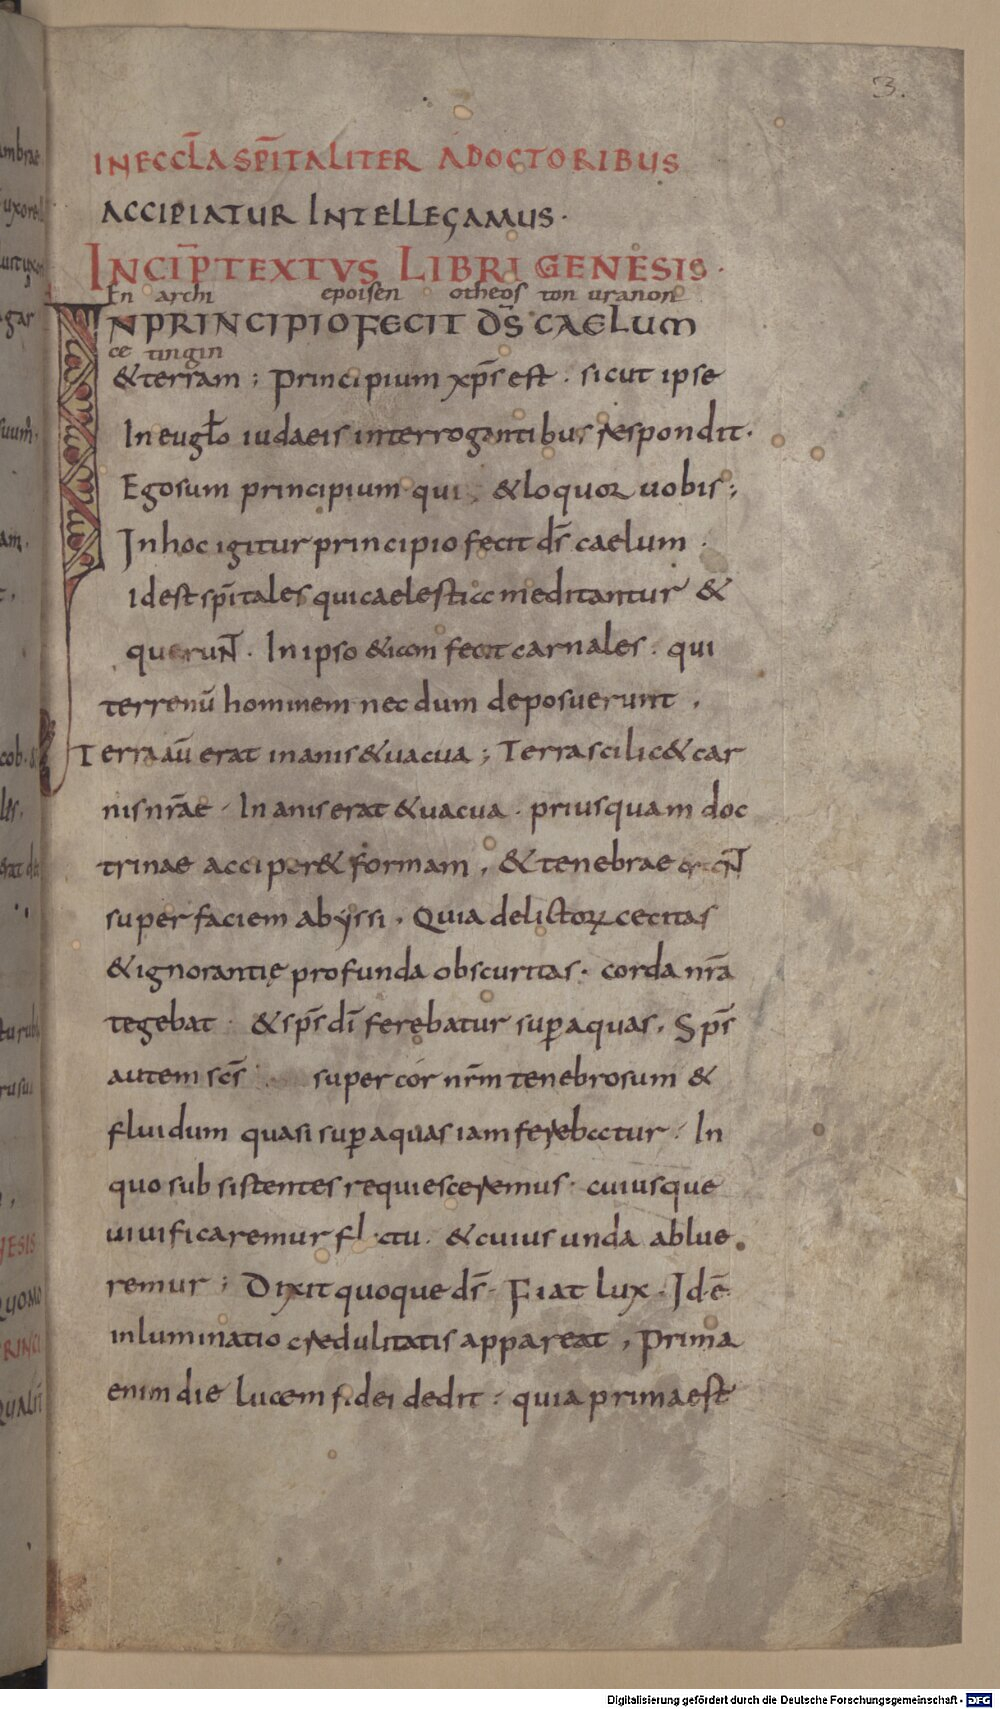 3.
IN ECCL̅A SP̅ITALITER A DOCTORIBUS
ACCIPIATUR INTELLEGAMUS·
INCIP̅ TEXTVS LIBRI GENESIS·
En archi epoisen otheos ton uranon
IN PRINCIPIO FECIT D̅S CAELUM
ce tingin
& terram; Principium xp̅s est. sicut ipse
In eugl̅o iudaeis interrogantibus respondit.
Ego sum principium qui & loquor uobis;
In hoc igitur principio fecit d̅s caelum.
Id est sp̅itales qui caelestia meditantur &
querunt. In ipso & iam fecit carnales. qui
terrenū hominem nec dum deposuerunt.
Terra aū erat inanis & uacua; Terra scilic& car
nis nr̅ae. Inanis erat & uacua. priusquam doc
trinae acciper& formam. & tenebrae erant
super faciem abyssi. Quia delictoꝝ cecitas
& ignorantię profunda obscuritas. corda nr̅a
tegebat. & sp̅s dī ferebatur suꝑ aquas. Sp̅s
autem sc̅s super cór nr̅m tenebrosum &
fluidum quasi suꝑ aquas iam ferebatur. In
quo subsistentes requiesceremus. cuiusque
uiuificaremur flatu. & cuius unda ablue
remur; Dixit quoque d̅s. Fiat lux. Id ē
inluminatio credulitatis appareat. Prima
enim die lucem fidei dedit. quia prima est
Digitalisierung gefördert durch die Deutsche Forschungsgemeinschaft - DFG